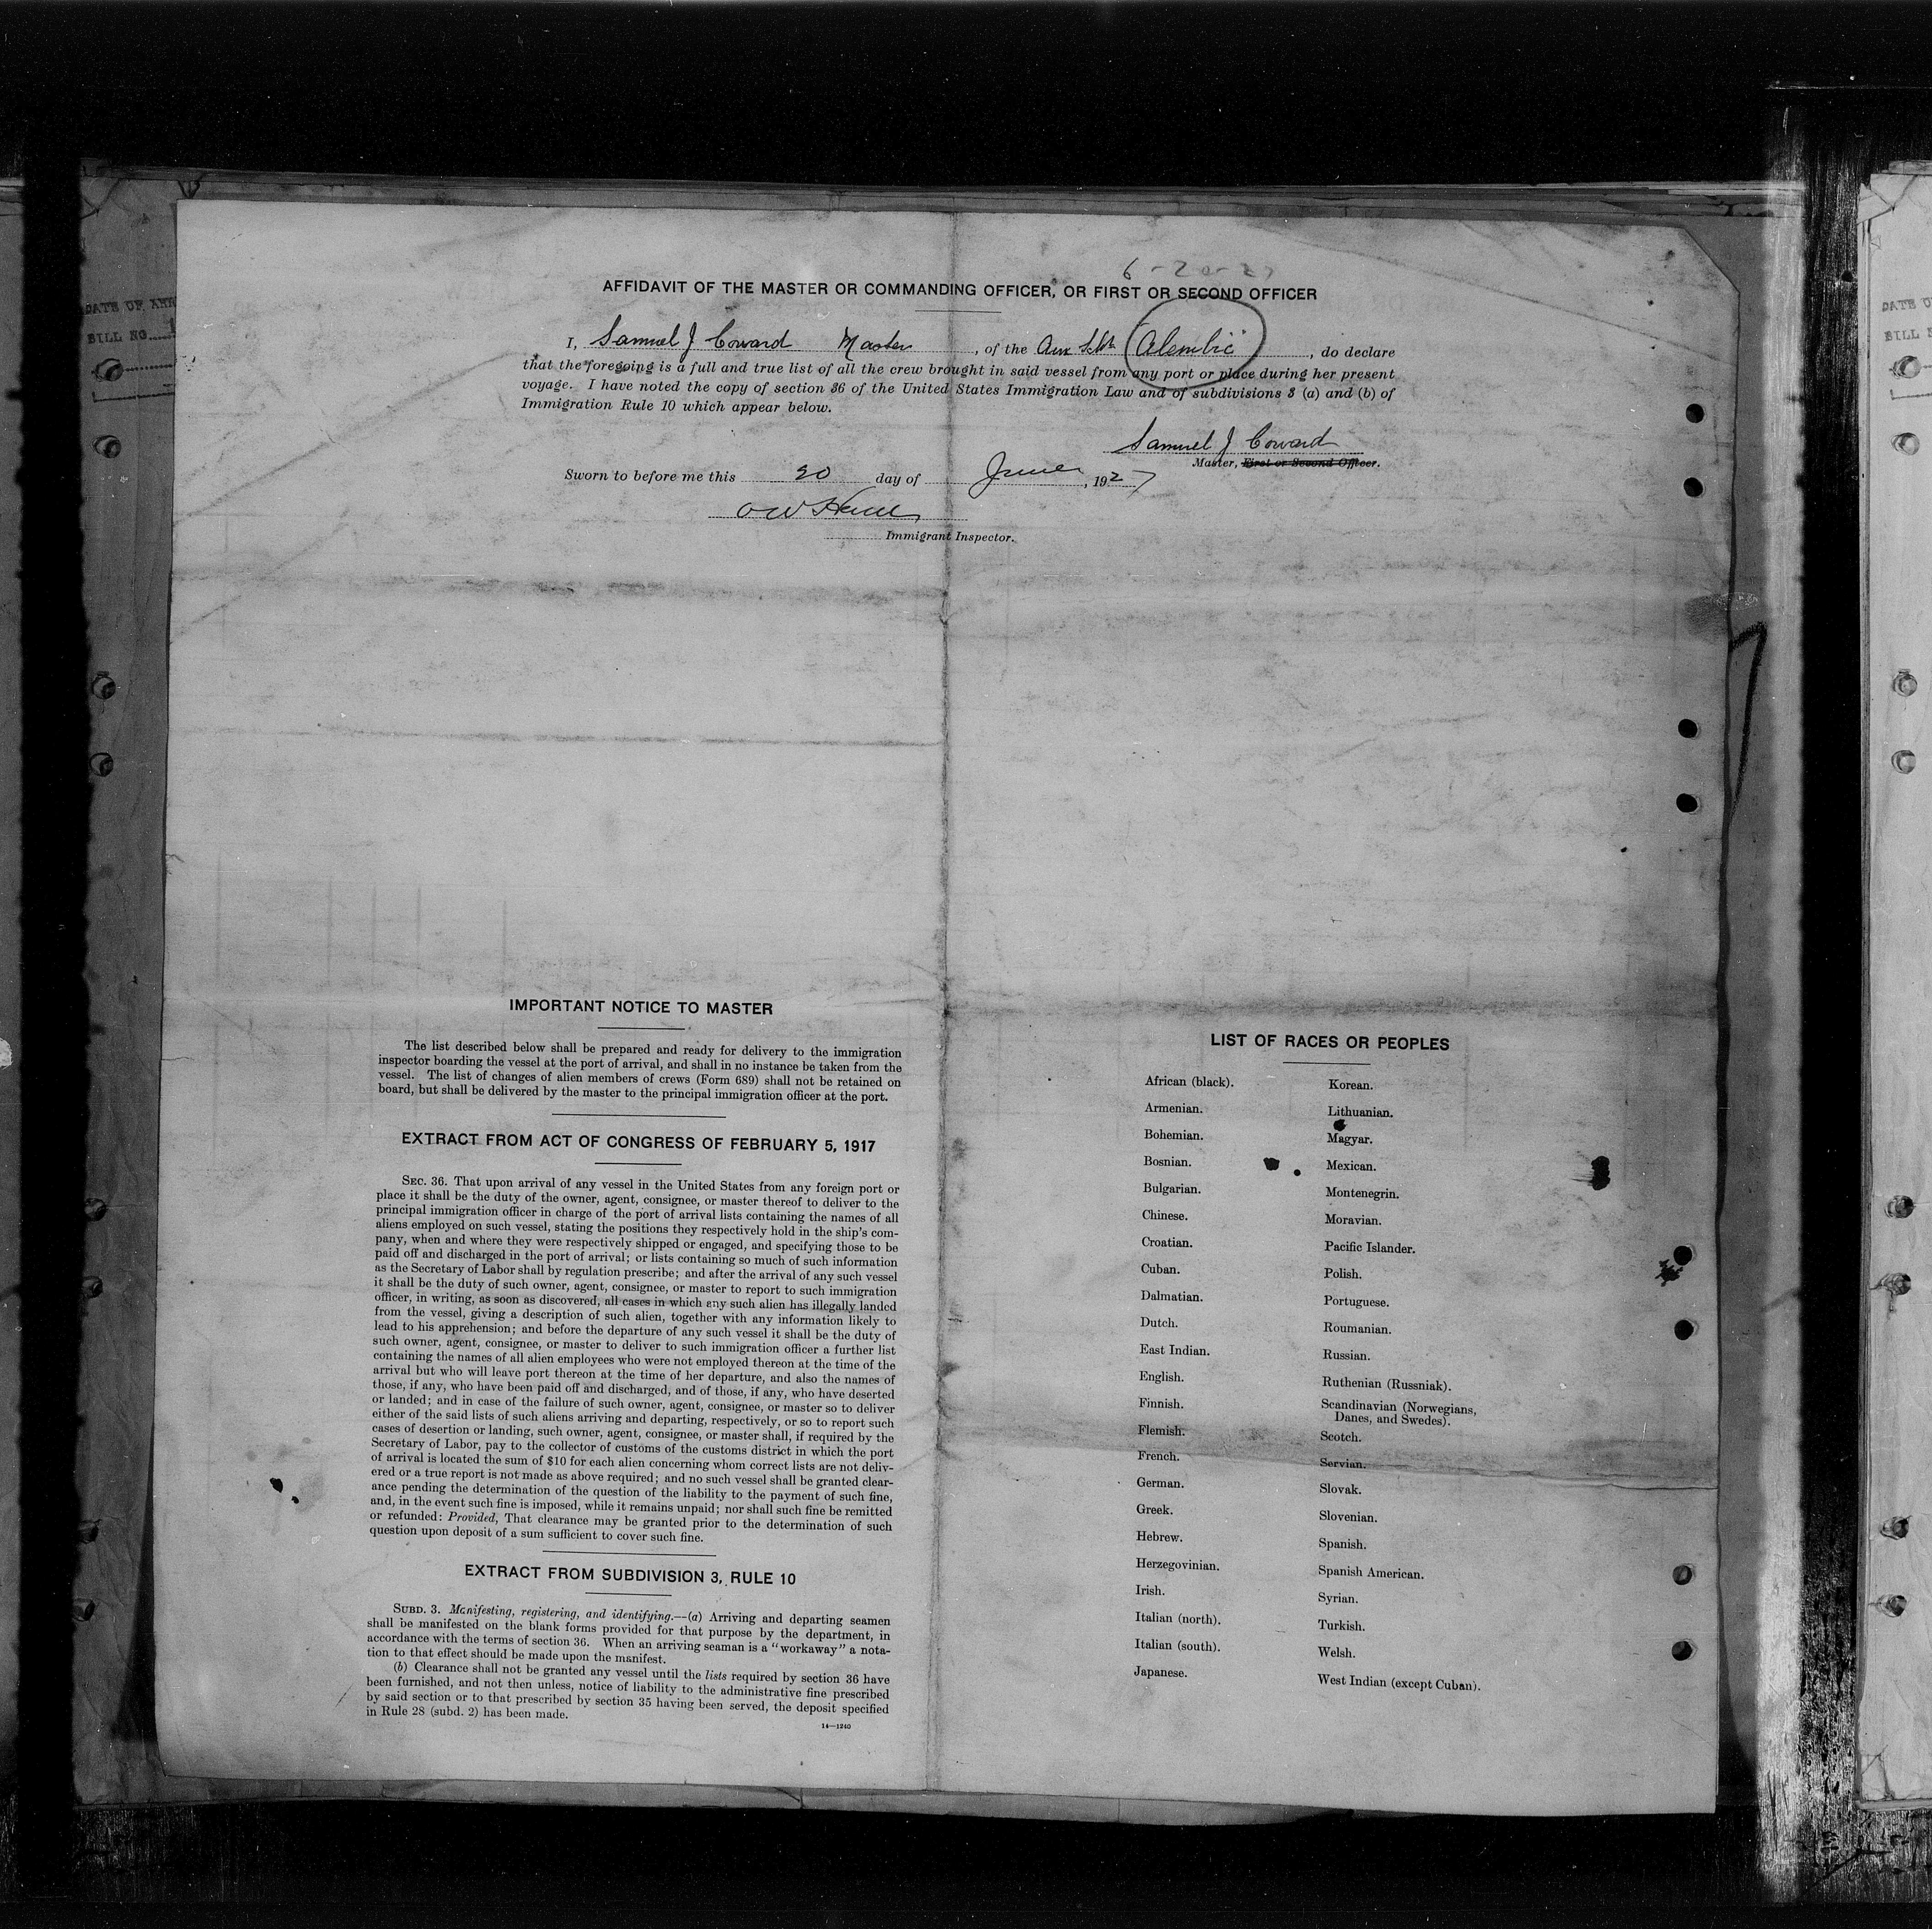 6-20-27
AFFIDAVIT OF THE MASTER OR COMMANDING OFFICER, OR FIRST OR SECOND OFFICER
I, Samuel J Coward Master, of the Aux Sch Alembic, do declare
that the foregoing is a full and true list of all the crew brought in said vessel from any port or place during her present
voyage. I have noted the copy of section 36 of the United States Immigration Law and of subdivisions 3 (a) and (b) of
Immigration Rule 10 which appear below.
Samuel J Coward
Master, First or Second Officer.
Sworn to before me this 20 day of June, 1927
Immigrant Inspector.
IMPORTANT NOTICE TO MASTER
The list described below shall be prepared and ready for delivery to the immigration
inspector boarding the vessel at the port of arrival, and shall in no instance be taken from the
vessel. The list of changes of alien members of crews (Form 689) shall not be retained on
board, but shall be delivered by the master to the principal immigration officer at the port.
EXTRACT FROM ACT OF CONGRESS OF FEBRUARY 5, 1917
SEC. 36. That upon arrival of any vessel in the United States from any foreign port or
place it shall be the duty of the owner, agent, consignee, or master thereof to deliver to the
principal immigration officer in charge of the port of arrival lists containing the names of all
aliens employed on such vessel, stating the positions they respectively hold in the ship's com-
pany, when and where they were respectively shipped or engaged, and specifying those to be
paid off and discharged in the port of arrival; or lists containing so much of such information
as the Secretary of Labor shall by regulation prescribe; and after the arrival of any such vessel
it shall be the duty of such owner, agent, consignee, or master to report to such immigration
officer, in writing, as soon as discovered, all cases in which any such alien has illegally landed
from the vessel, giving a description of such alien, together with any information likely to
lead to his apprehension; and before the departure of any such vessel it shall be the duty of
such owner, agent, consignee, or master to deliver to such immigration officer a further list
containing the names of all alien employees who were not employed thereon at the time of the
arrival but who will leave port thereon at the time of her departure, and also the names of
those, if any, who have been paid off and discharged, and of those, if any, who have deserted
or landed; and in case of the failure of such owner, agent, consignee, or master so to deliver
either of the said lists of such aliens arriving and departing, respectively, or so to report such
cases of desertion or landing, such owner, agent, consignee, or master shall, if required by the
Secretary of Labor, pay to the collector of customs of the customs district in which the port
of arrival is located the sum of $10 for each alien concerning whom correct lists are not deliv-
ered or a true report is not made as above required; and no such vessel shall be granted clear-
ance pending the determination of the question of the liability to the payment of such fine,
and, in the event such fine is imposed, while it remains unpaid; nor shall such fine be remitted
or refunded: Provided, That clearance may be granted prior to the determination of such
question upon deposit of a sum sufficient to cover such fine.
EXTRACT FROM SUBDIVISION 3, RULE 10
SUBD. 3. Manifesting, registering, and identifying.—(a) Arriving and departing seamen
shall be manifested on the blank forms provided for that purpose by the department, in
accordance with the terms of section 36. When an arriving seaman is a "workaway" a nota-
tion to that effect should be made upon the manifest.
(b) Clearance shall not be granted any vessel until the lists required by section 36 have
been furnished, and not then unless, notice of liability to the administrative fine prescribed
by said section or to that prescribed by section 35 having been served, the deposit specified
in Rule 28 (subd. 2) has been made.
14—1240
LIST OF RACES OR PEOPLES
African (black).
Armenian.
Bohemian.
Bosnian.
Bulgarian.
Chinese.
Croatian.
Cuban.
Dalmatian.
Dutch.
East Indian.
English.
Finnish.
Flemish.
French.
German.
Greek.
Hebrew.
Herzegovinian.
Irish.
Italian (north).
Italian (south).
Japanese.
Korean.
Lithuanian.
Magyar.
Mexican.
Montenegrin.
Moravian.
Pacific Islander.
Polish.
Portuguese.
Roumanian.
Russian.
Ruthenian (Russniak).
Scandinavian (Norwegians,
Danes, and Swedes).
Scotch.
Servian.
Slovak.
Slovenian.
Spanish.
Spanish American.
Syrian.
Turkish.
Welsh.
West Indian (except Cuban).